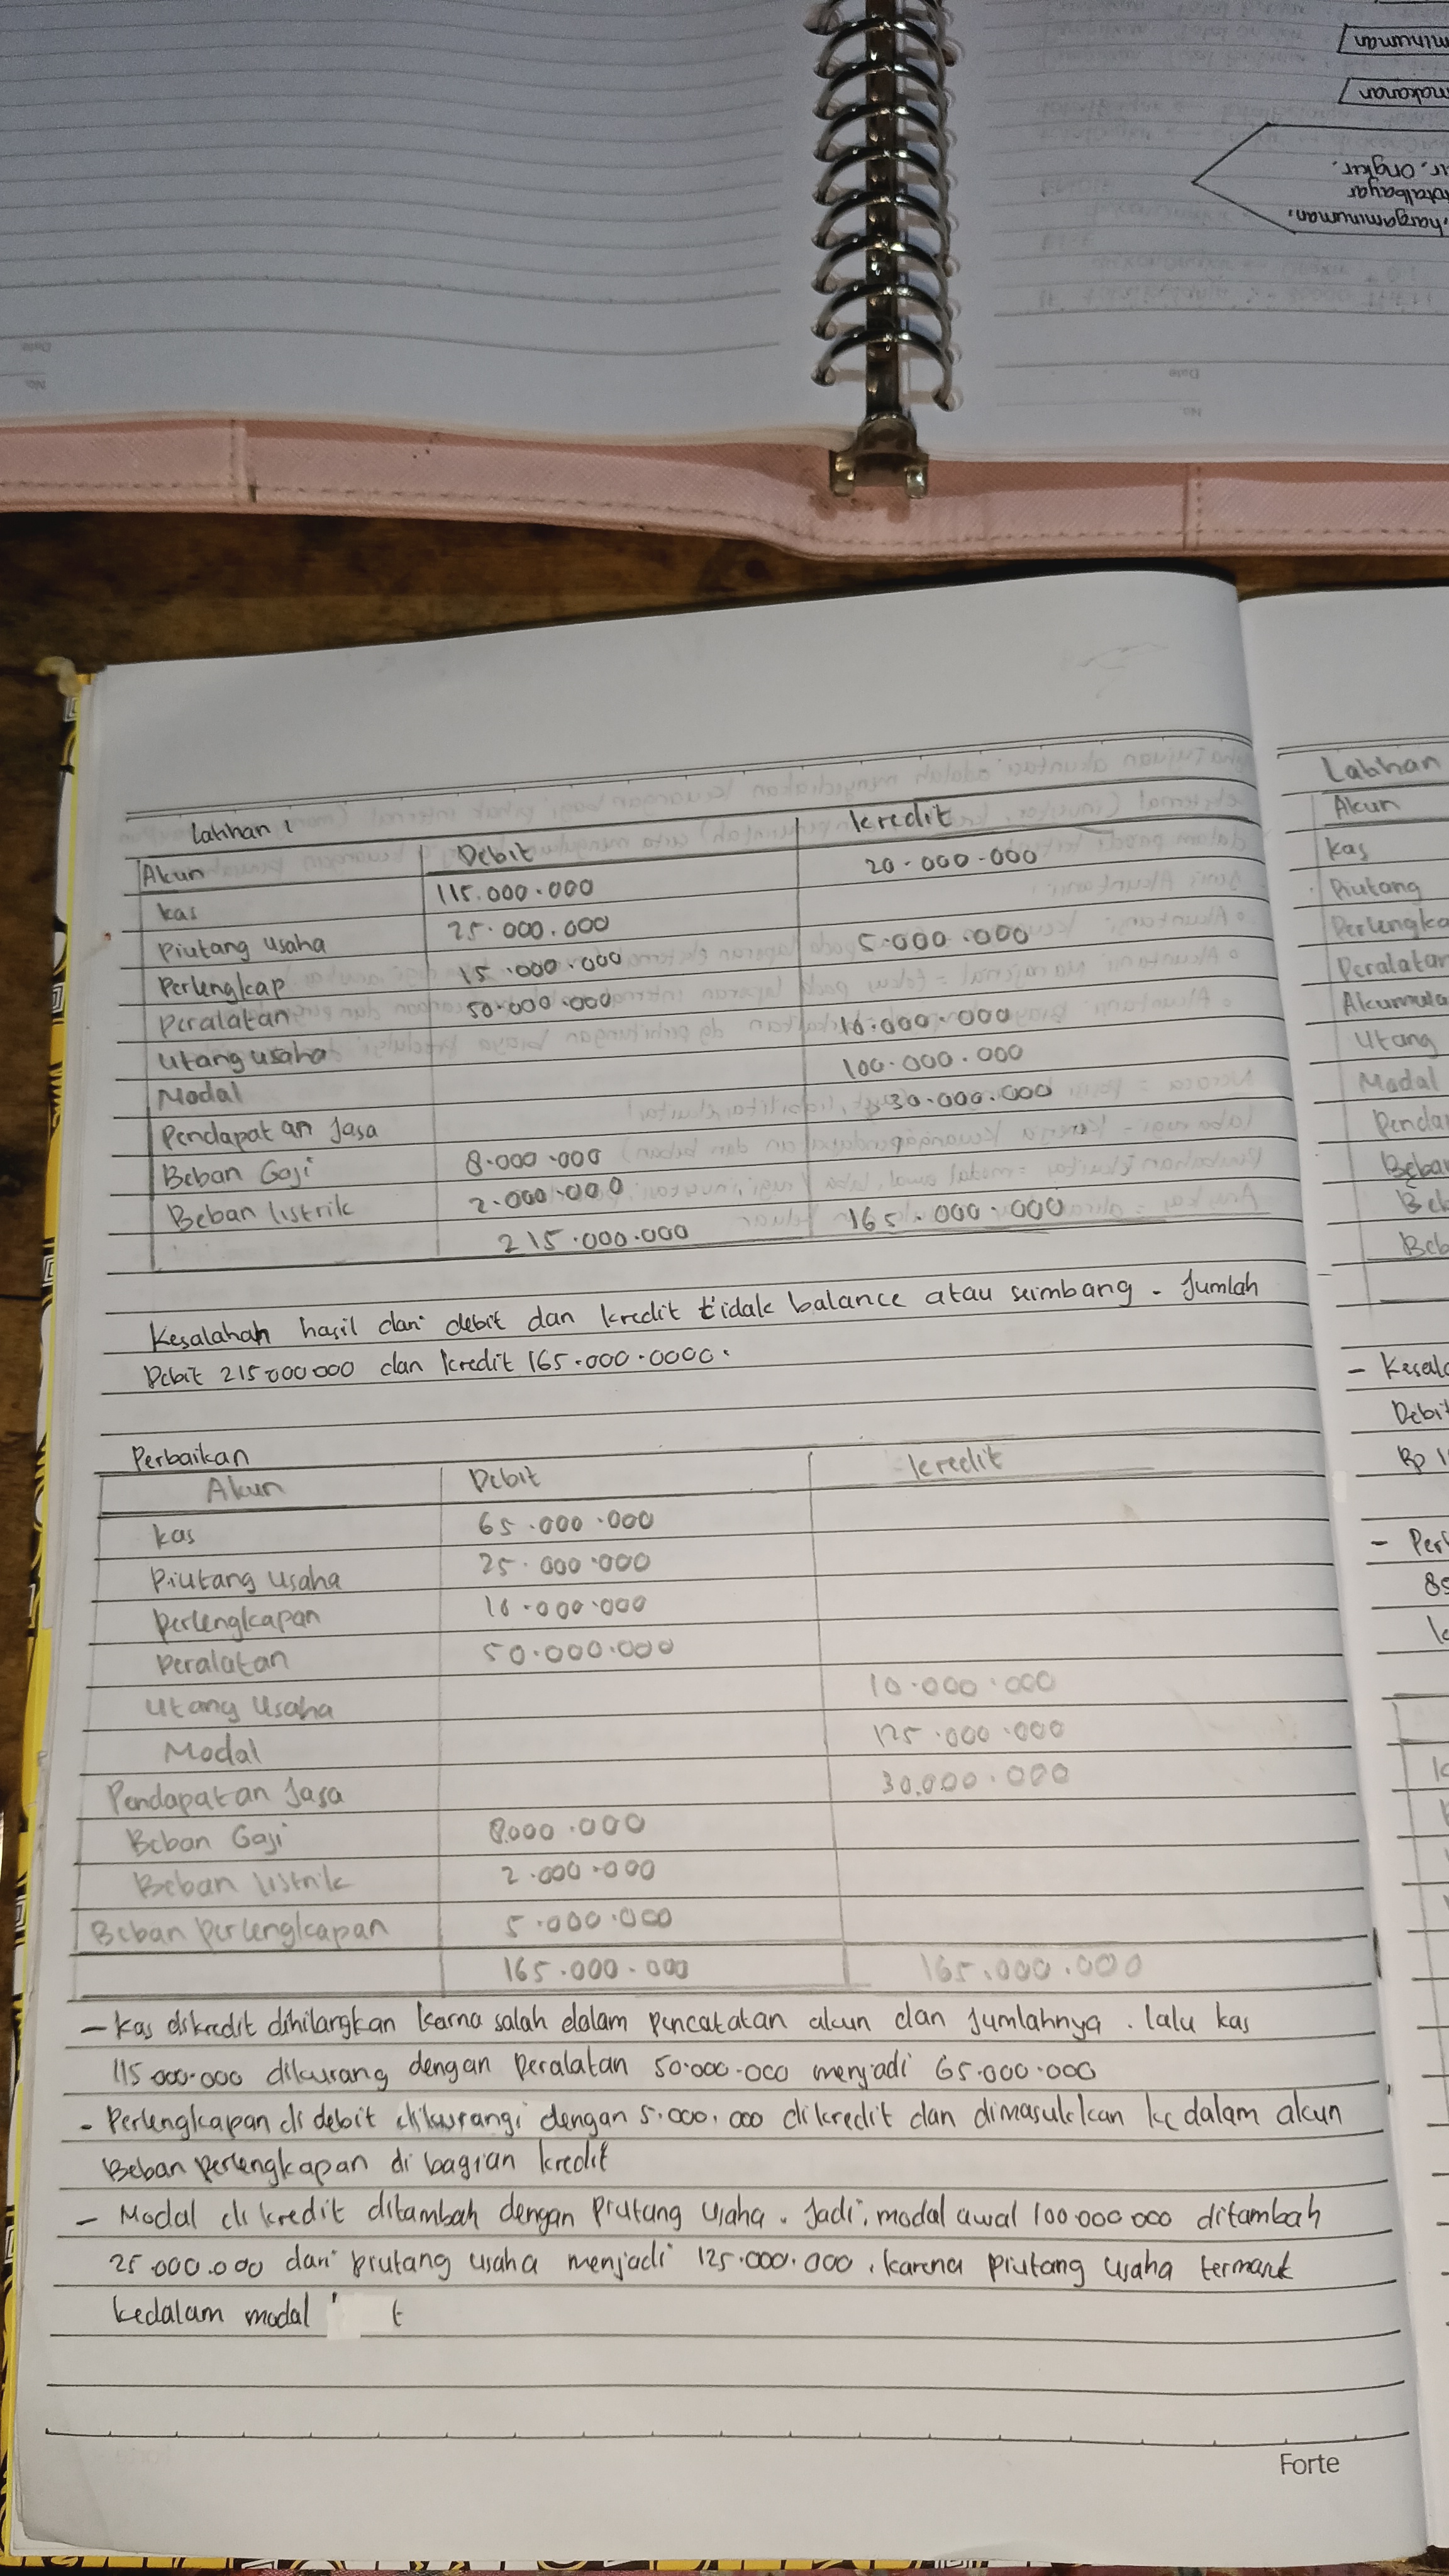 minuman
makanan
ir, ongkir.
totalbayar
hargaminuman,
Date
No.
Date
No.
Latihan 1
Akun Debit kredit
kas 115.000.000 20.000.000
Piutang usaha 25.000.000
Perlengkap 15.000.000 5.000.000
Peralatan 50.000.000
Utang usaha 10.000.000
Modal 100.000.000
Pendapatan Jasa 30.000.000
Beban Gaji 8.000.000
Beban listrik 2.000.000
215.000.000 165.000.000
Kesalahan hasil dari debit dan kredit tidak balance atau seimbang. Jumlah
Debit 215000000 dan kredit 165.000.0000.
Perbaikan
Akun Debit kredit
kas 65.000.000
Piutang usaha 25.000.000
Perlengkapan 10.000.000
Peralatan 50.000.000
Utang Usaha 10.000.000
Modal 125.000.000
Pendapatan Jasa 30.000.000
Beban Gaji 8.000.000
Beban listrik 2.000.000
Beban perlengkapan 5.000.000
165.000.000 165.000.000
- Kas dikredit dihilangkan karna salah dalam pencatatan akun dan jumlahnya. lalu kas
115.000.000 dikurang dengan peralatan 50.000.000 menjadi 65.000.000
- Perlengkapan di debit dikurangi dengan 5.000.000 dikredit dan dimasukkan ke dalam akun
Beban perlengkapan di bagian kredit
- Modal di kredit ditambah dengan Piutang usaha. Jadi, modal awal 100.000.000 ditambah
25.000.000 dari piutang usaha menjadi 125.000.000. karena piutang usaha termasuk
kedalam modal
Forte
Latihan
Akun
Kas
Piutang
Perlengka
Peralatan
Akumula
Utang
Modal
Penda
Beban
Beb
Beb
- Kesala
Debit
Rp 1
- Perb
85